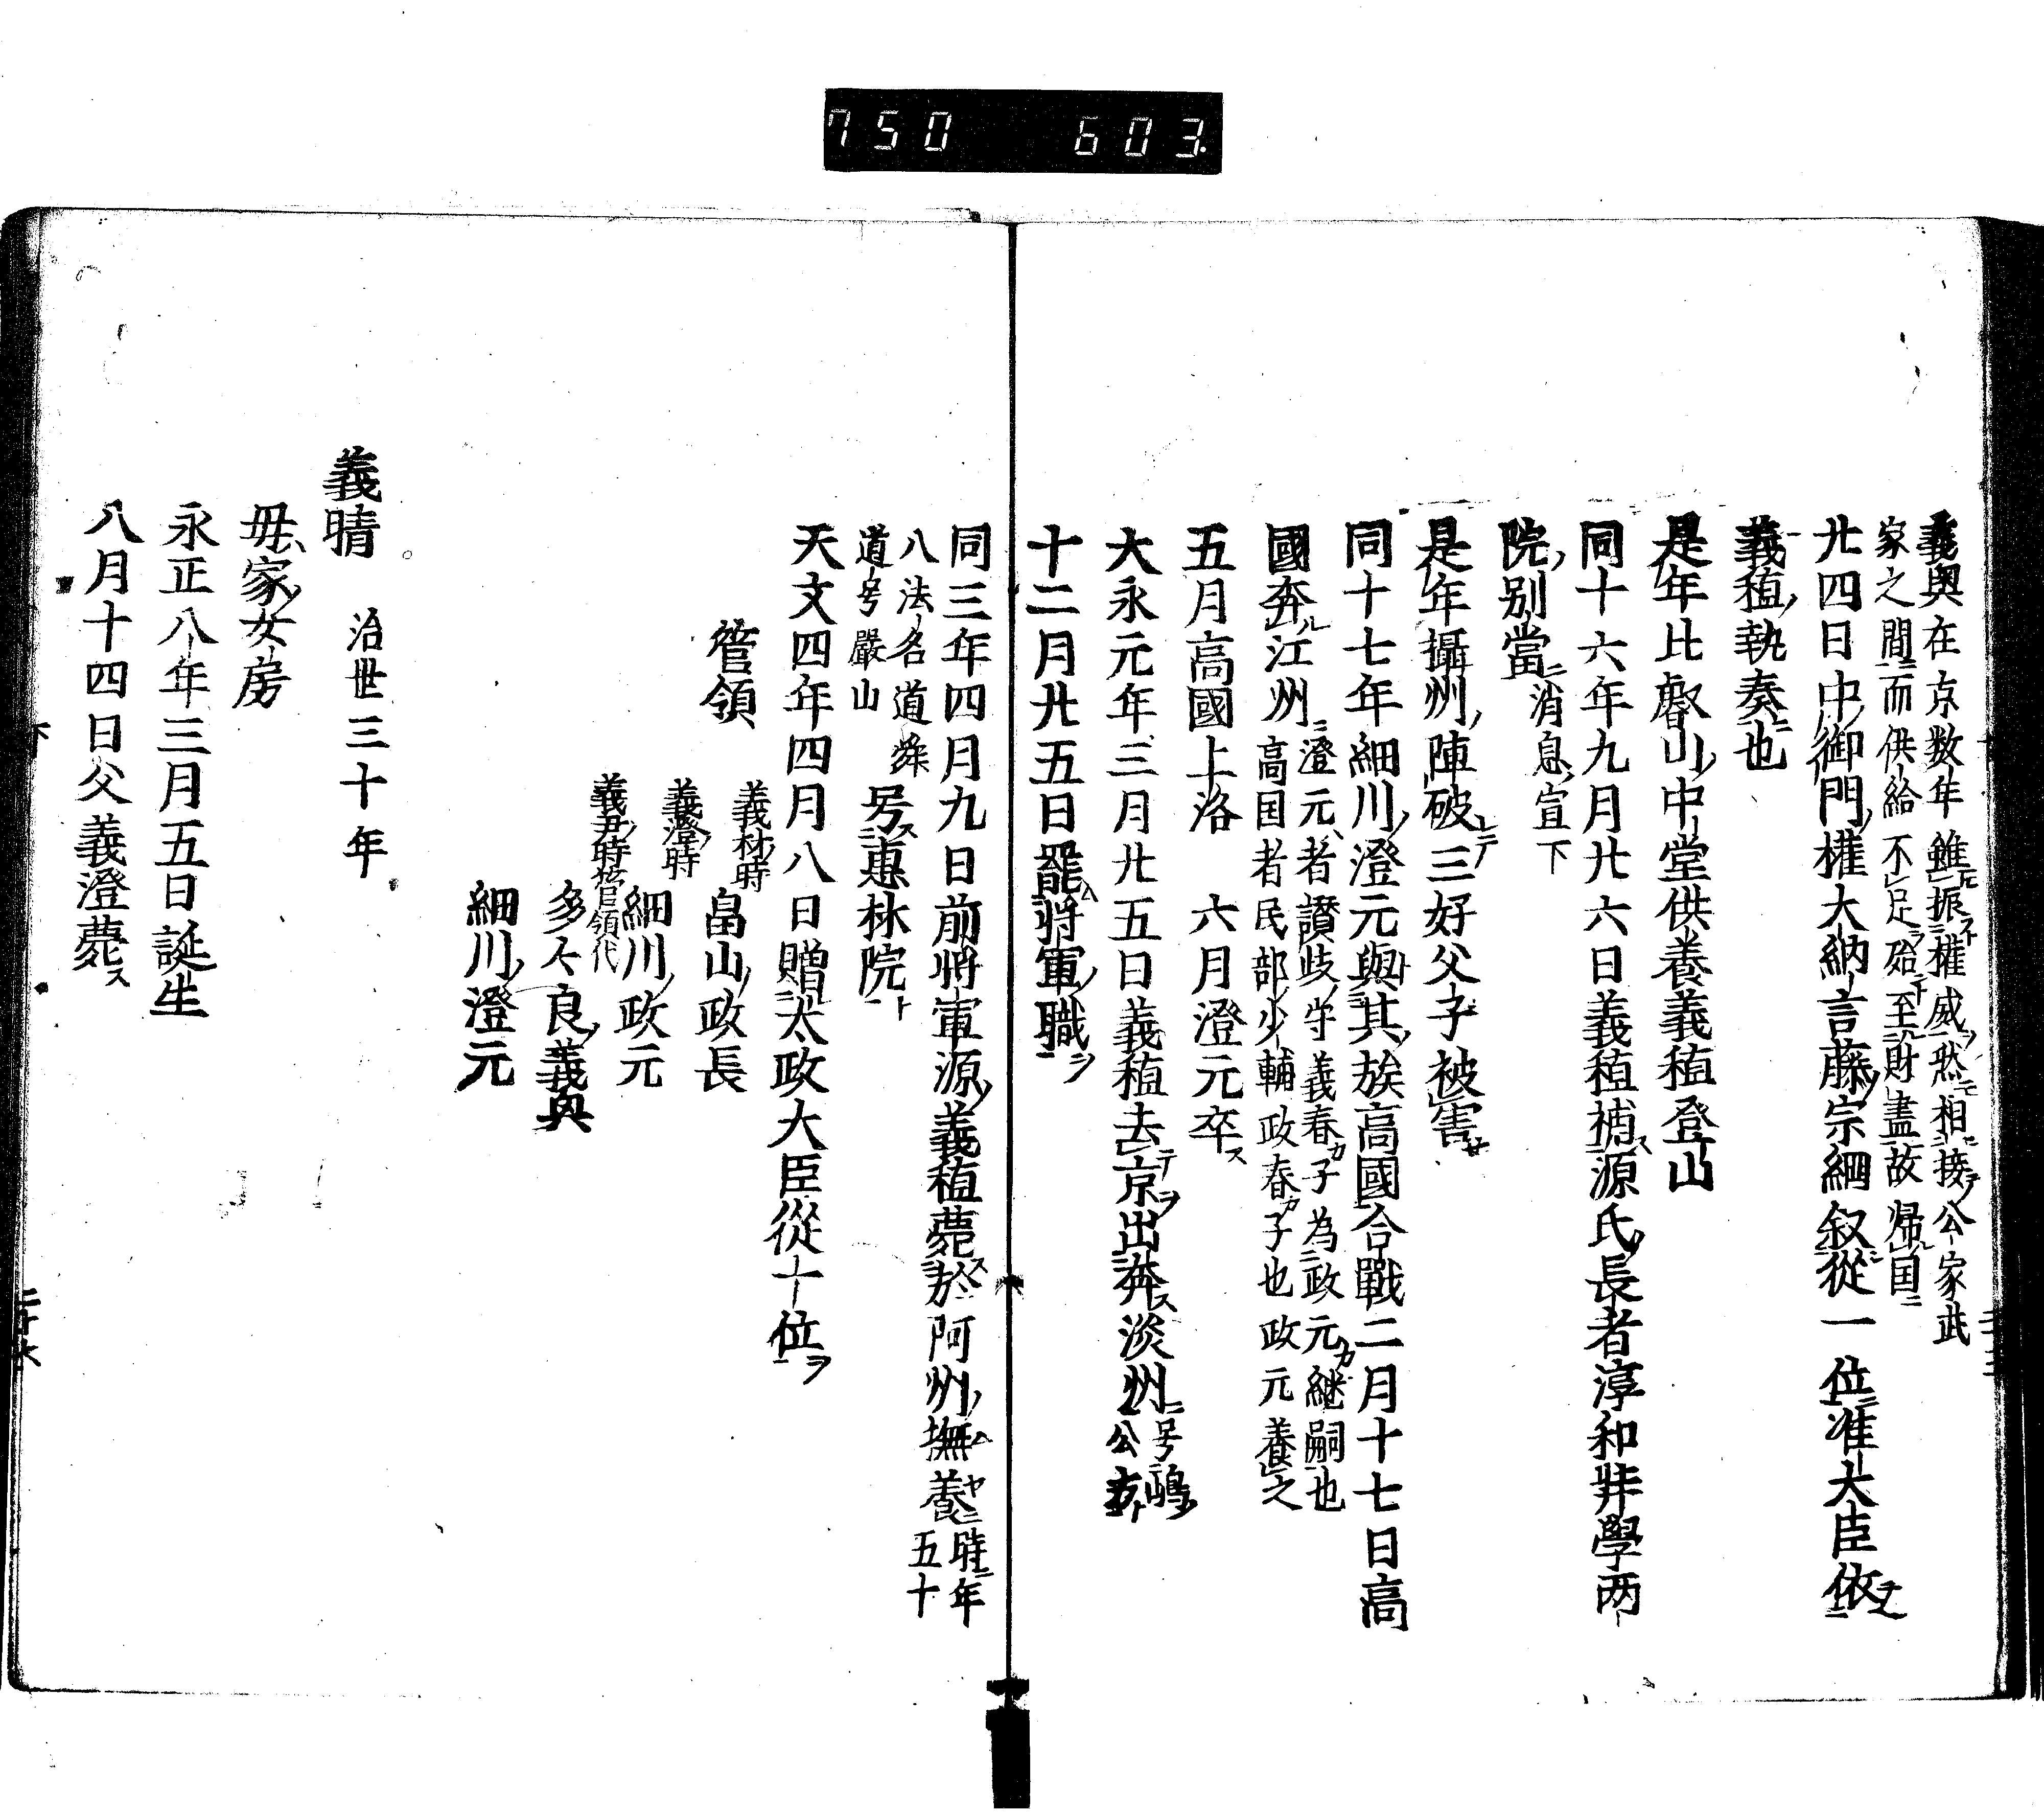 750 603
義與在京数年雖振權威然相接公家武
家之間而供給不足殆至財盡故帰国
廿四日中御門權大納言藤宗綱叙從一位准大臣依
義稙執奏也
是年比叡山中堂供養義稙登山
同十六年九月廿六日義稙補源氏長者淳和弉學两
院別當消息宣下
是年攝州陣破三好父子被害
同十七年細川澄元與其族高國合戰二月十七日高
國奔江州澄元者讃岐守義春子為政元継嗣也
高国者民部少輔政春子也政元養之
五月高國上洛 六月澄元卒
大永元年三月廿五日義稙去京出奔淡州号嶋
公方
十二月廿五日罷将軍職
同三年四月九日前将軍源義稙薨於阿州撫養時年
五十
八法名道舜
道号嚴山号惠林院
天文四年四月八日贈太政大臣從十位
管領
義材時 畠山政長
義澄時 細川政元
義尹時管領代 多々良義與
細川澄元
義晴 治世三十年
毋家女房
永正八年三月五日誕生
八月十四日父義澄薨